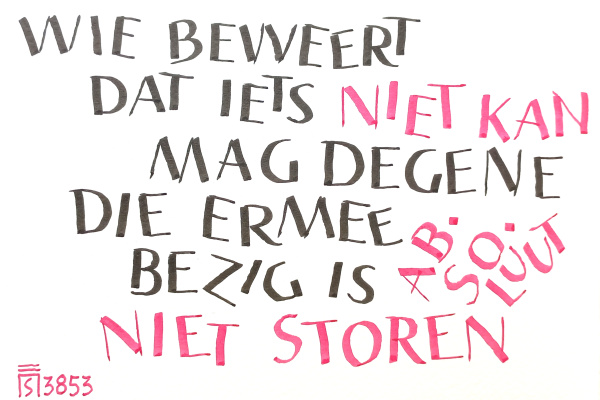 WIE BEWEERT
DAT IETS NIET KAN
MAG DEGENE
DIE ERMEE
BEZIG IS AB·SO·LUUT
NIET STOREN
S 3853